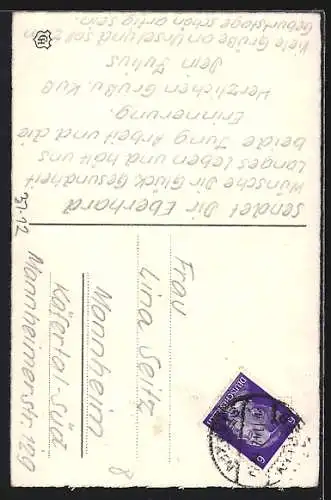 sendet Dir Eberhard
Wünsche Dir Glück, Gesundheit
Langes Leben und halt uns
beide Jung Arbeit und die
Erinnerung.
Herzlichen Gruß u. Kuß
Dein Julius
Viele Grüße an Ursel und sollt
Geburtstage schön artig sein.
Frau
Lina Seitz
Mannheim
8
Käfertal-Süd
Mannheimerstr. 129
6 6